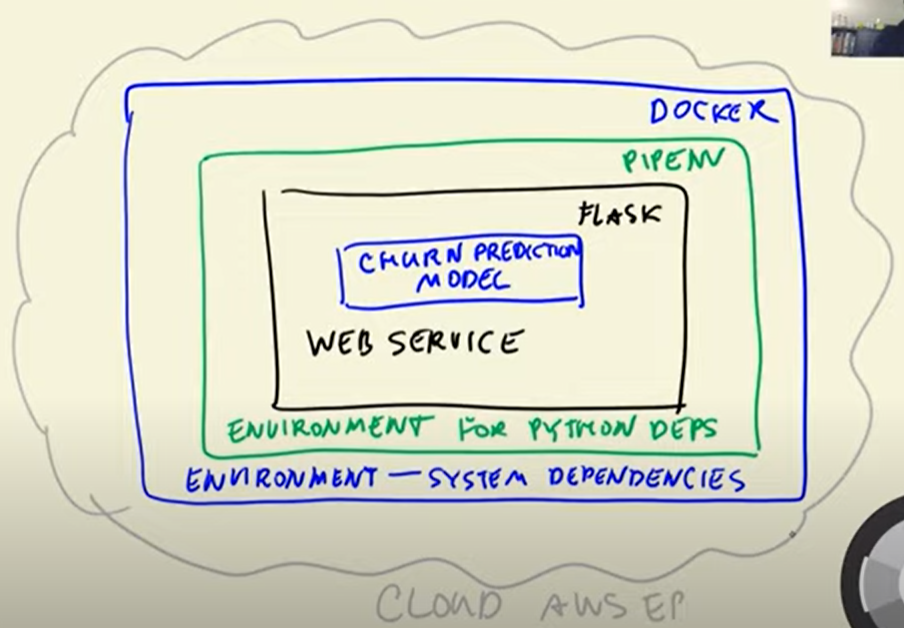 DOCKER
PIPENV
FLASK
CHURN PREDICTION
MODEL
WEB SERVICE
ENVIRONMENT FOR PYTHON DEPS
ENVIRONMENT — SYSTEM DEPENDENCIES
CLOUD AWS EP